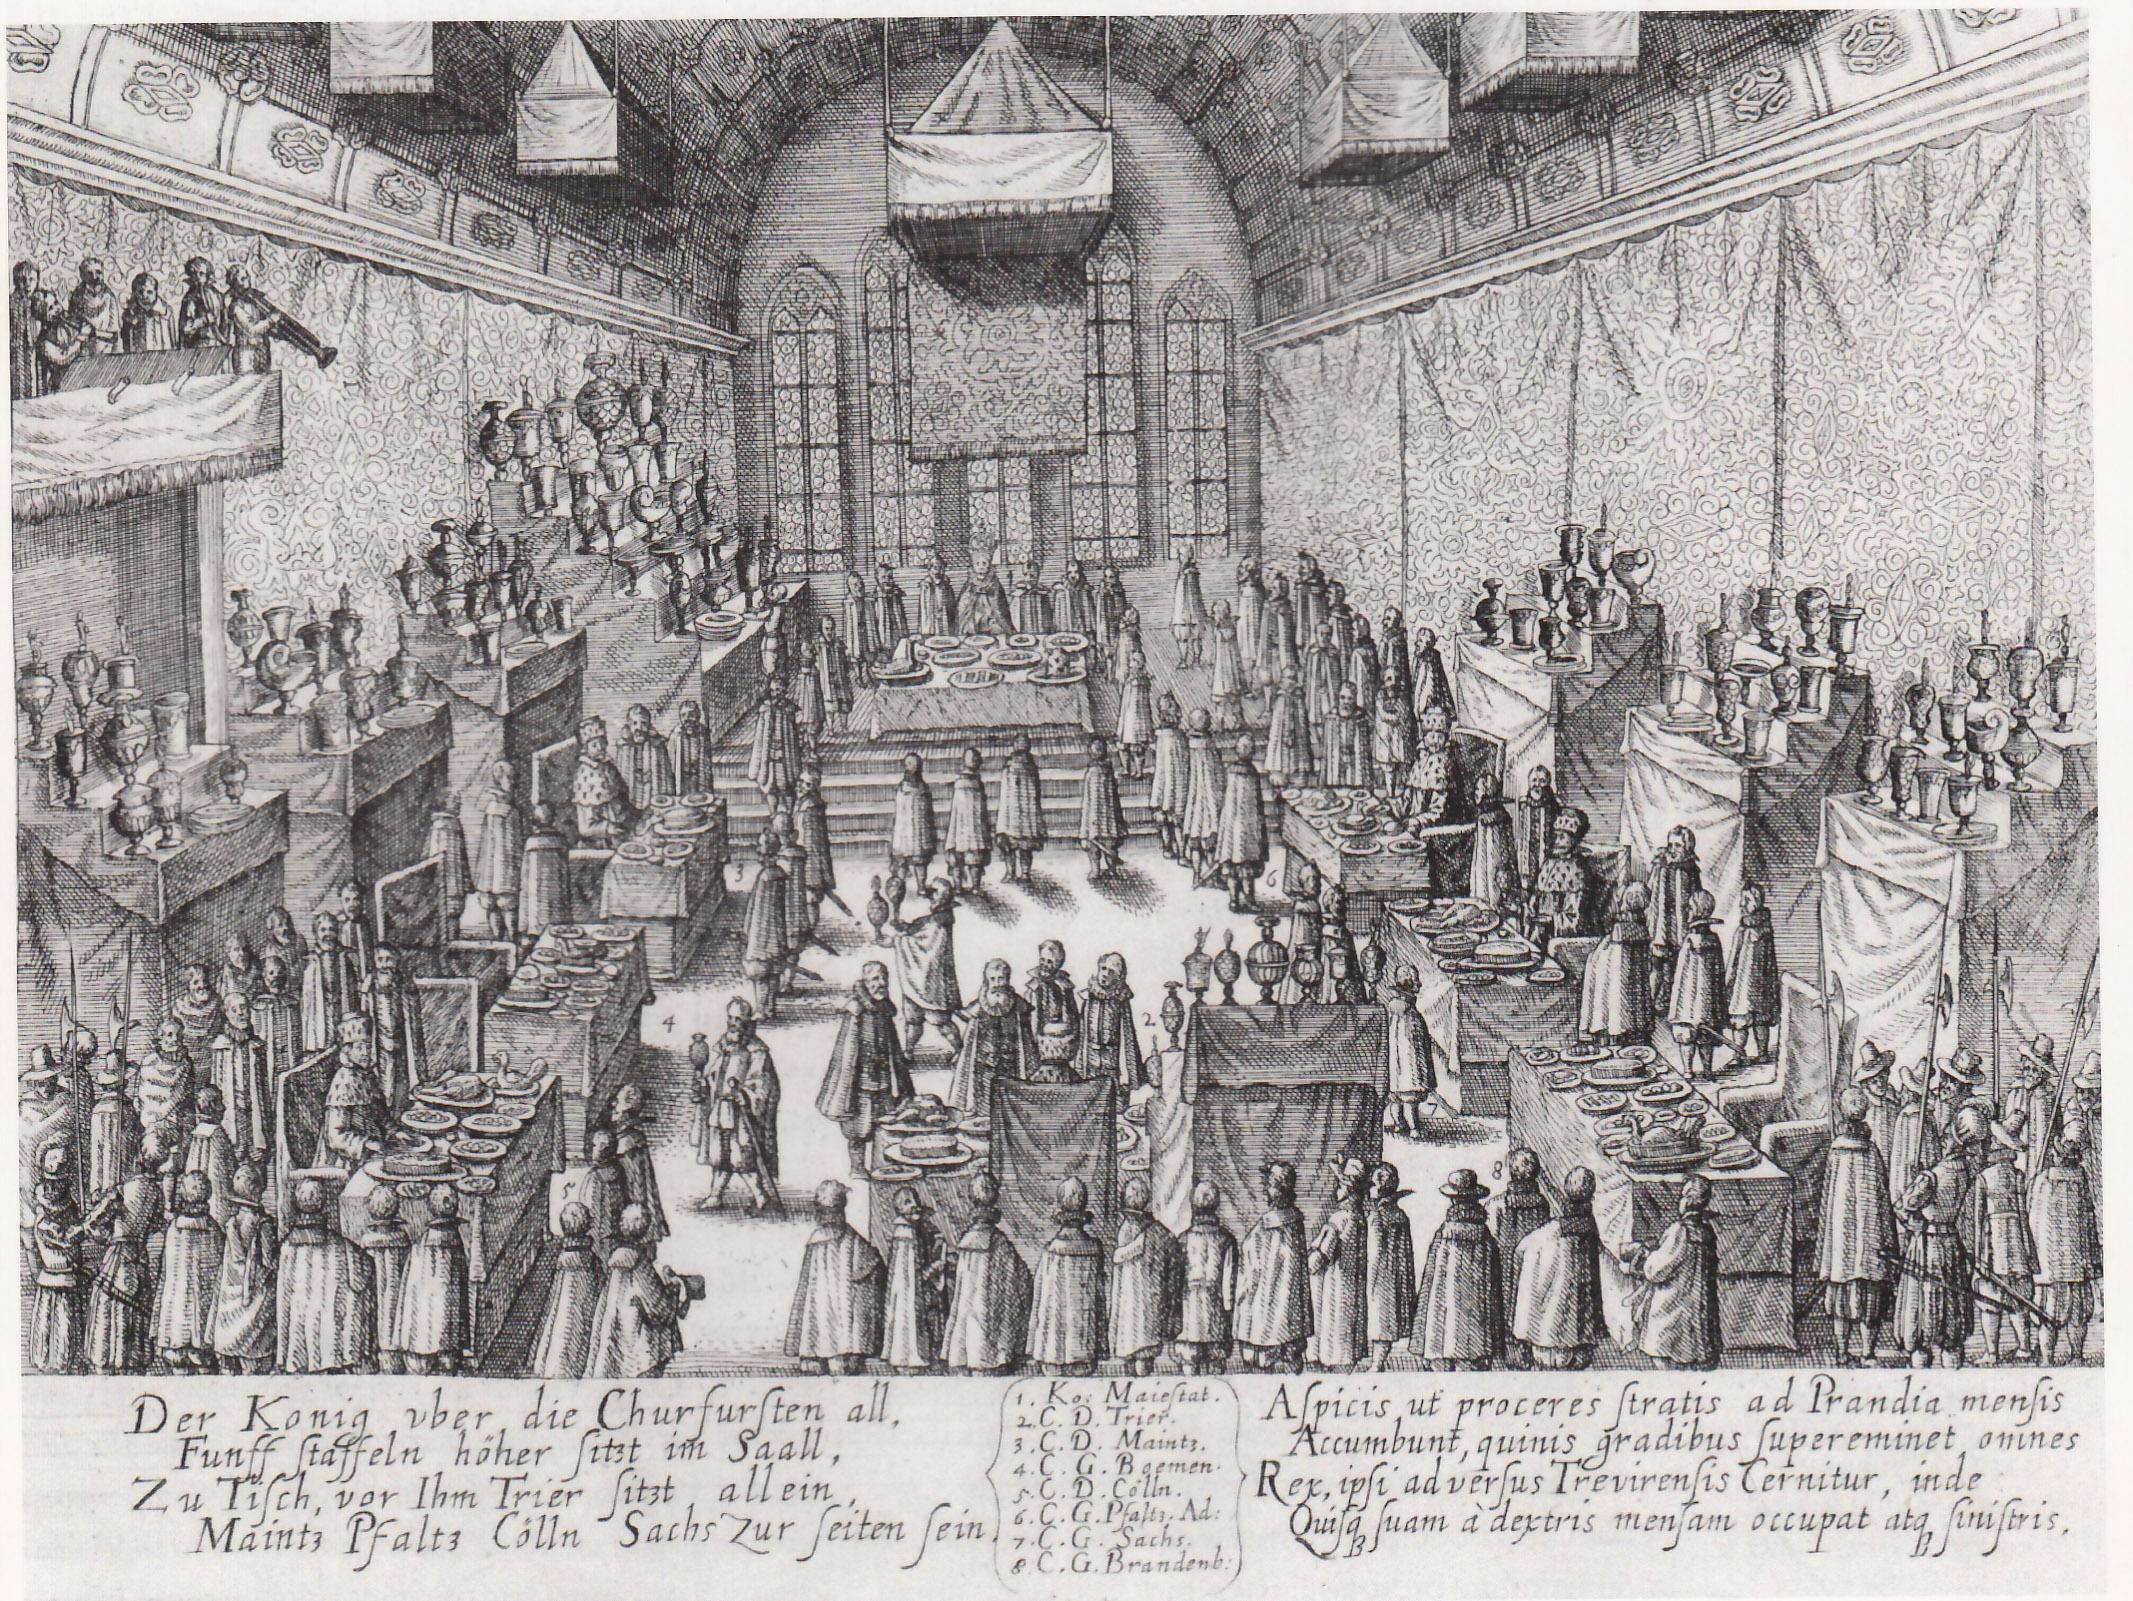 Der Konig vber die Churfurſten all,
Funff ſtaffeln höher ſitzt im Saall,
Zu Tiſch, vor Ihm Trier ſitzt allein,
Maintz Pfaltz Cölln Sachs Zur ſeiten ſein.
1. Ko: Maieſtat.
2. C. D. Trier.
3. C. D. Maintz.
4. C. G. Boemen.
5. C. D. Cölln.
6. C. G. Pfaltz. Ad:
7. C. G. Sachs.
8. C. G. Brandenb:
Aſpicis ut proceres ſtratis ad Prandia menſis
Accumbunt, quinis gradibus ſupereminet omnes
Rex, ipſi adverſus Trevirenſis Cernitur, inde
Quiſq ſuam à dextris menſam occupat atq ſiniſtris.
3
6
4
2
5
7
8